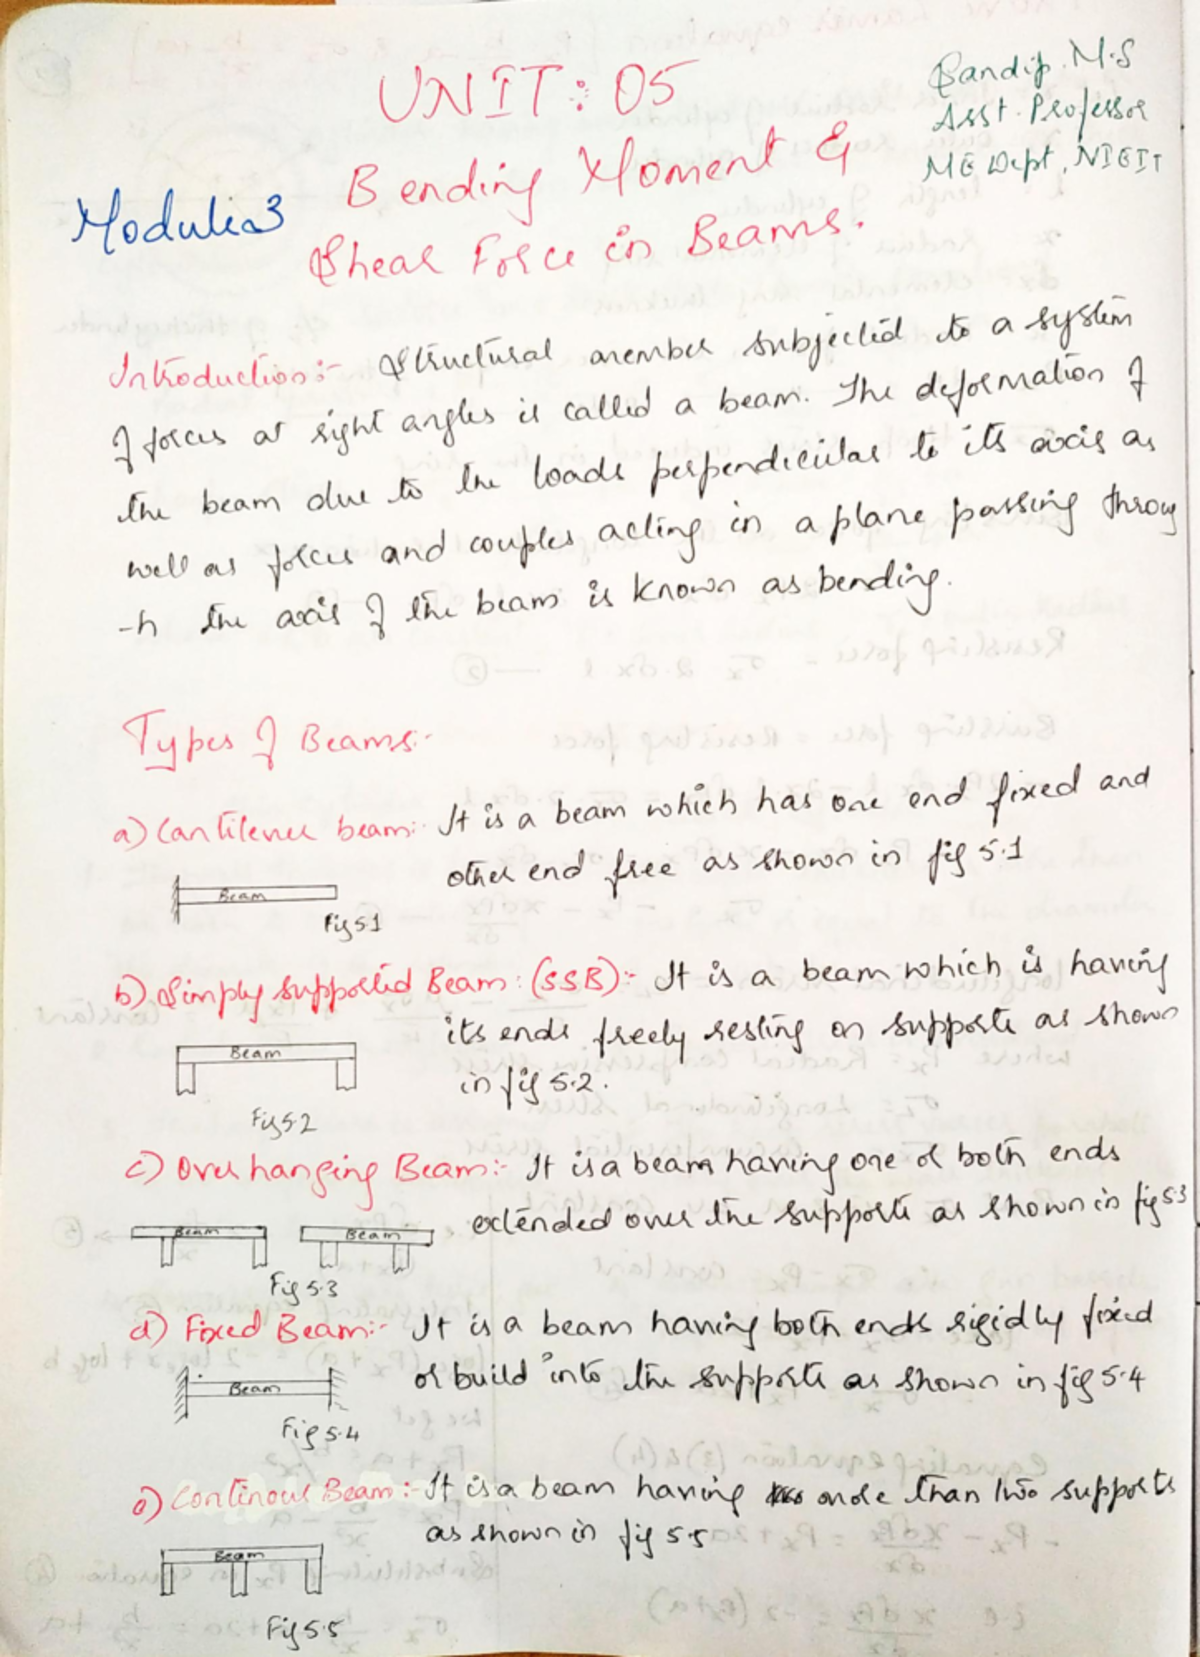 UNIT: 05
Sandip. M.S
Asst. Professor
ME Dept, NIEIT
Bending Moment &
Module 3
Shear Force in Beams.
Introduction:- Structural member subjected to a system
of forces at right angles is called a beam. The deformation of
the beam due to the loads perpendicular to its axis as
well as forces and couples acting in a plane passing throug
-h the axis of the beam is known as bending.
Types of Beams:-
a) Cantilever beam:- It is a beam which has one end fixed and
other end free as shown in fig 5.1
Beam
Fig 5.1
b) Simply supported Beam: (SSB):- It is a beam which is having
its ends freely resting on supports as shown
in fig 5.2.
Beam
Fig 5.2
c) Over hanging Beam:- It is a beam having one or both ends
extended over the supports as shown in fig 5.3
Beam Beam
Fig 5.3
d) Fixed Beam:- It is a beam having both ends rigidly fixed
or build into the supports as shown in fig 5.4
Beam
Fig 5.4
e) Continous Beam:- It is a beam having more than two supports
as shown in fig 5.5
Beam
Fig 5.5